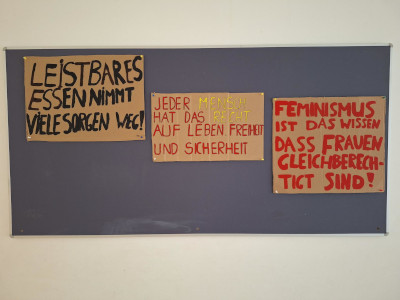 LEISTBARES
ESSEN NIMMT
VIELE SORGEN WEG!
JEDER MENSCH
HAT DAS RECHT
AUF LEBEN FREIHEIT
UND SICHERHEIT
FEMINISMUS
IST DAS WISSEN
DASS FRAUEN
GLEICHBERECH-
TIGT SIND!